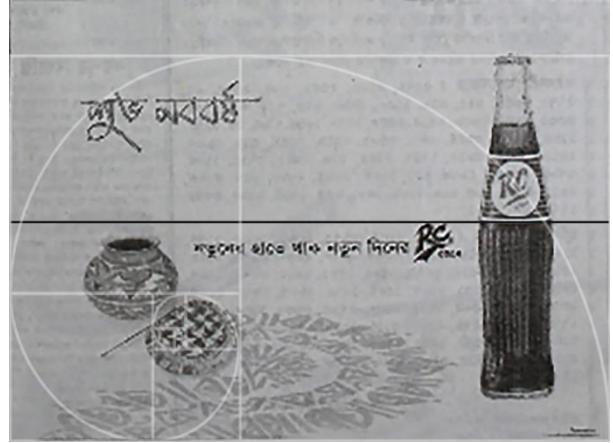 শুভ নববর্ষ
নতুনের হাতে থাক নতুন দিনের RC COLA
RC